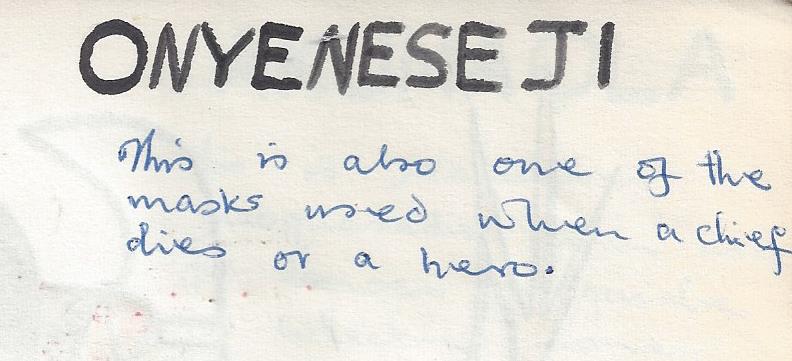 ONYENESE JI
This is also one of the
masks used when a chief
dies or a hero.